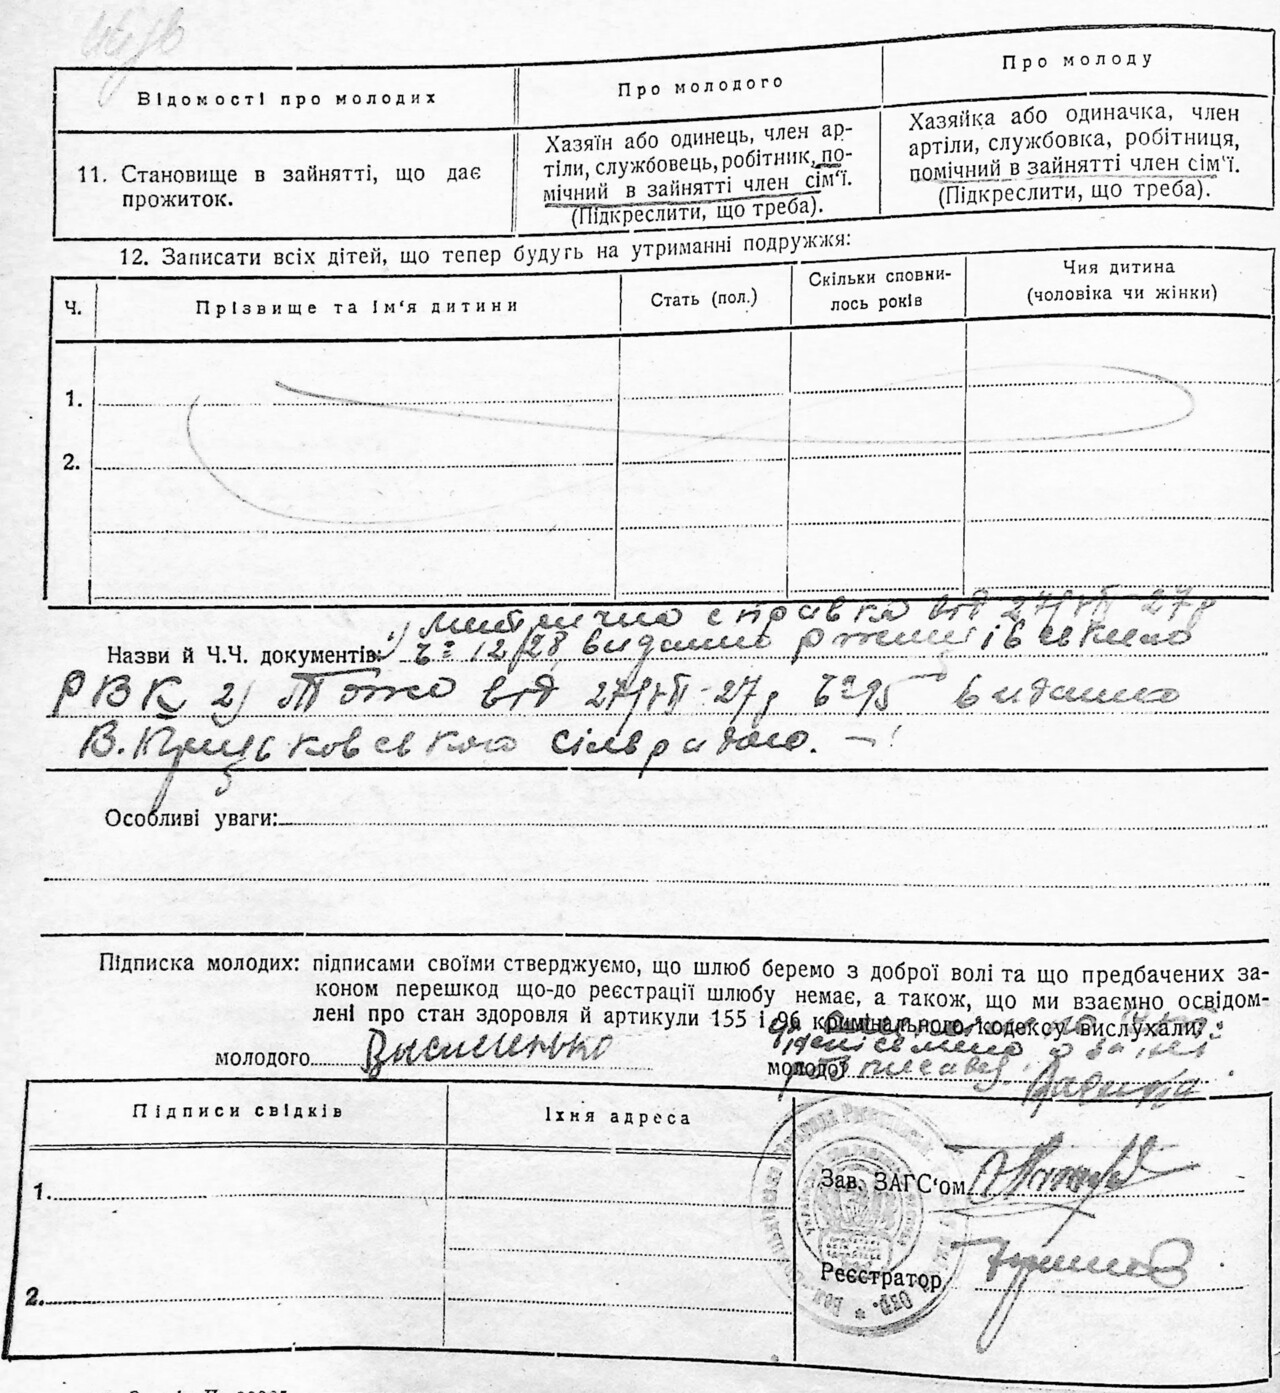 Відомості про молодих
Про молодого
Про молоду
11. Становище в зайнятті, що дає
прожиток.
Хазяїн або одинець, член ар-
тіли, службовець, робітник, по-
мічний в зайнятті член сім'ї.
(Підкреслити, що треба).
Хазяйка або одиначка, член
артіли, службовка, робітниця,
помічний в зайнятті член сім'ї.
(Підкреслити, що треба).
12. Записати всіх дітей, що тепер будуть на утриманні подружжя:
Ч.
Прізвище та ім'я дитини
Стать (пол.)
Скільки сповни-
лось років
Чия дитина
(чоловіка чи жінки)
1.
2.
1) Метрична справка від 27/VII-27р
Назви й Ч.Ч. документів: 12/28, видана
РВК 2) Тожо від 27/VII-27р №95 видана
В. сільрадою.
Особливі уваги:
Підписка молодих: підписами своїми стверджуємо, що шлюб беремо з доброї волі та що предбачених за-
коном перешкод що-до реєстрації шлюбу немає, а також, що ми взаємно освідом-
лені про стан здоровля й артикули 155 і 96 кримінального кодексу вислухали:
молодого Василенько
молодої
Підписи свідків
Їхня адреса
1.
2.
Зав. ЗАГС'ом
Реєстратор